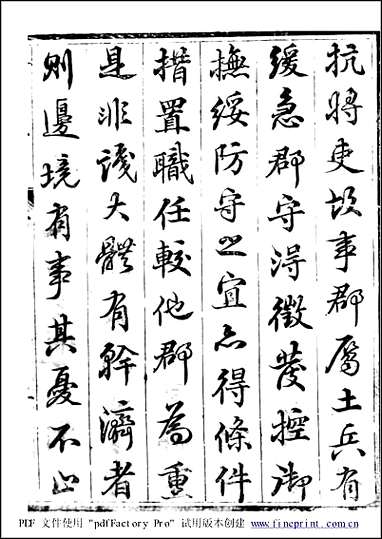 抗將吏故事郡属土兵有
緩急郡守得徵發控御
撫綏防守之宜亦得條件
措置職任較他郡為重
是非識大體有幹濟者
則邊境有事其憂不止
PDF 文件使用 "pdfFactory Pro" 试用版本创建 www.fineprint.com.cn